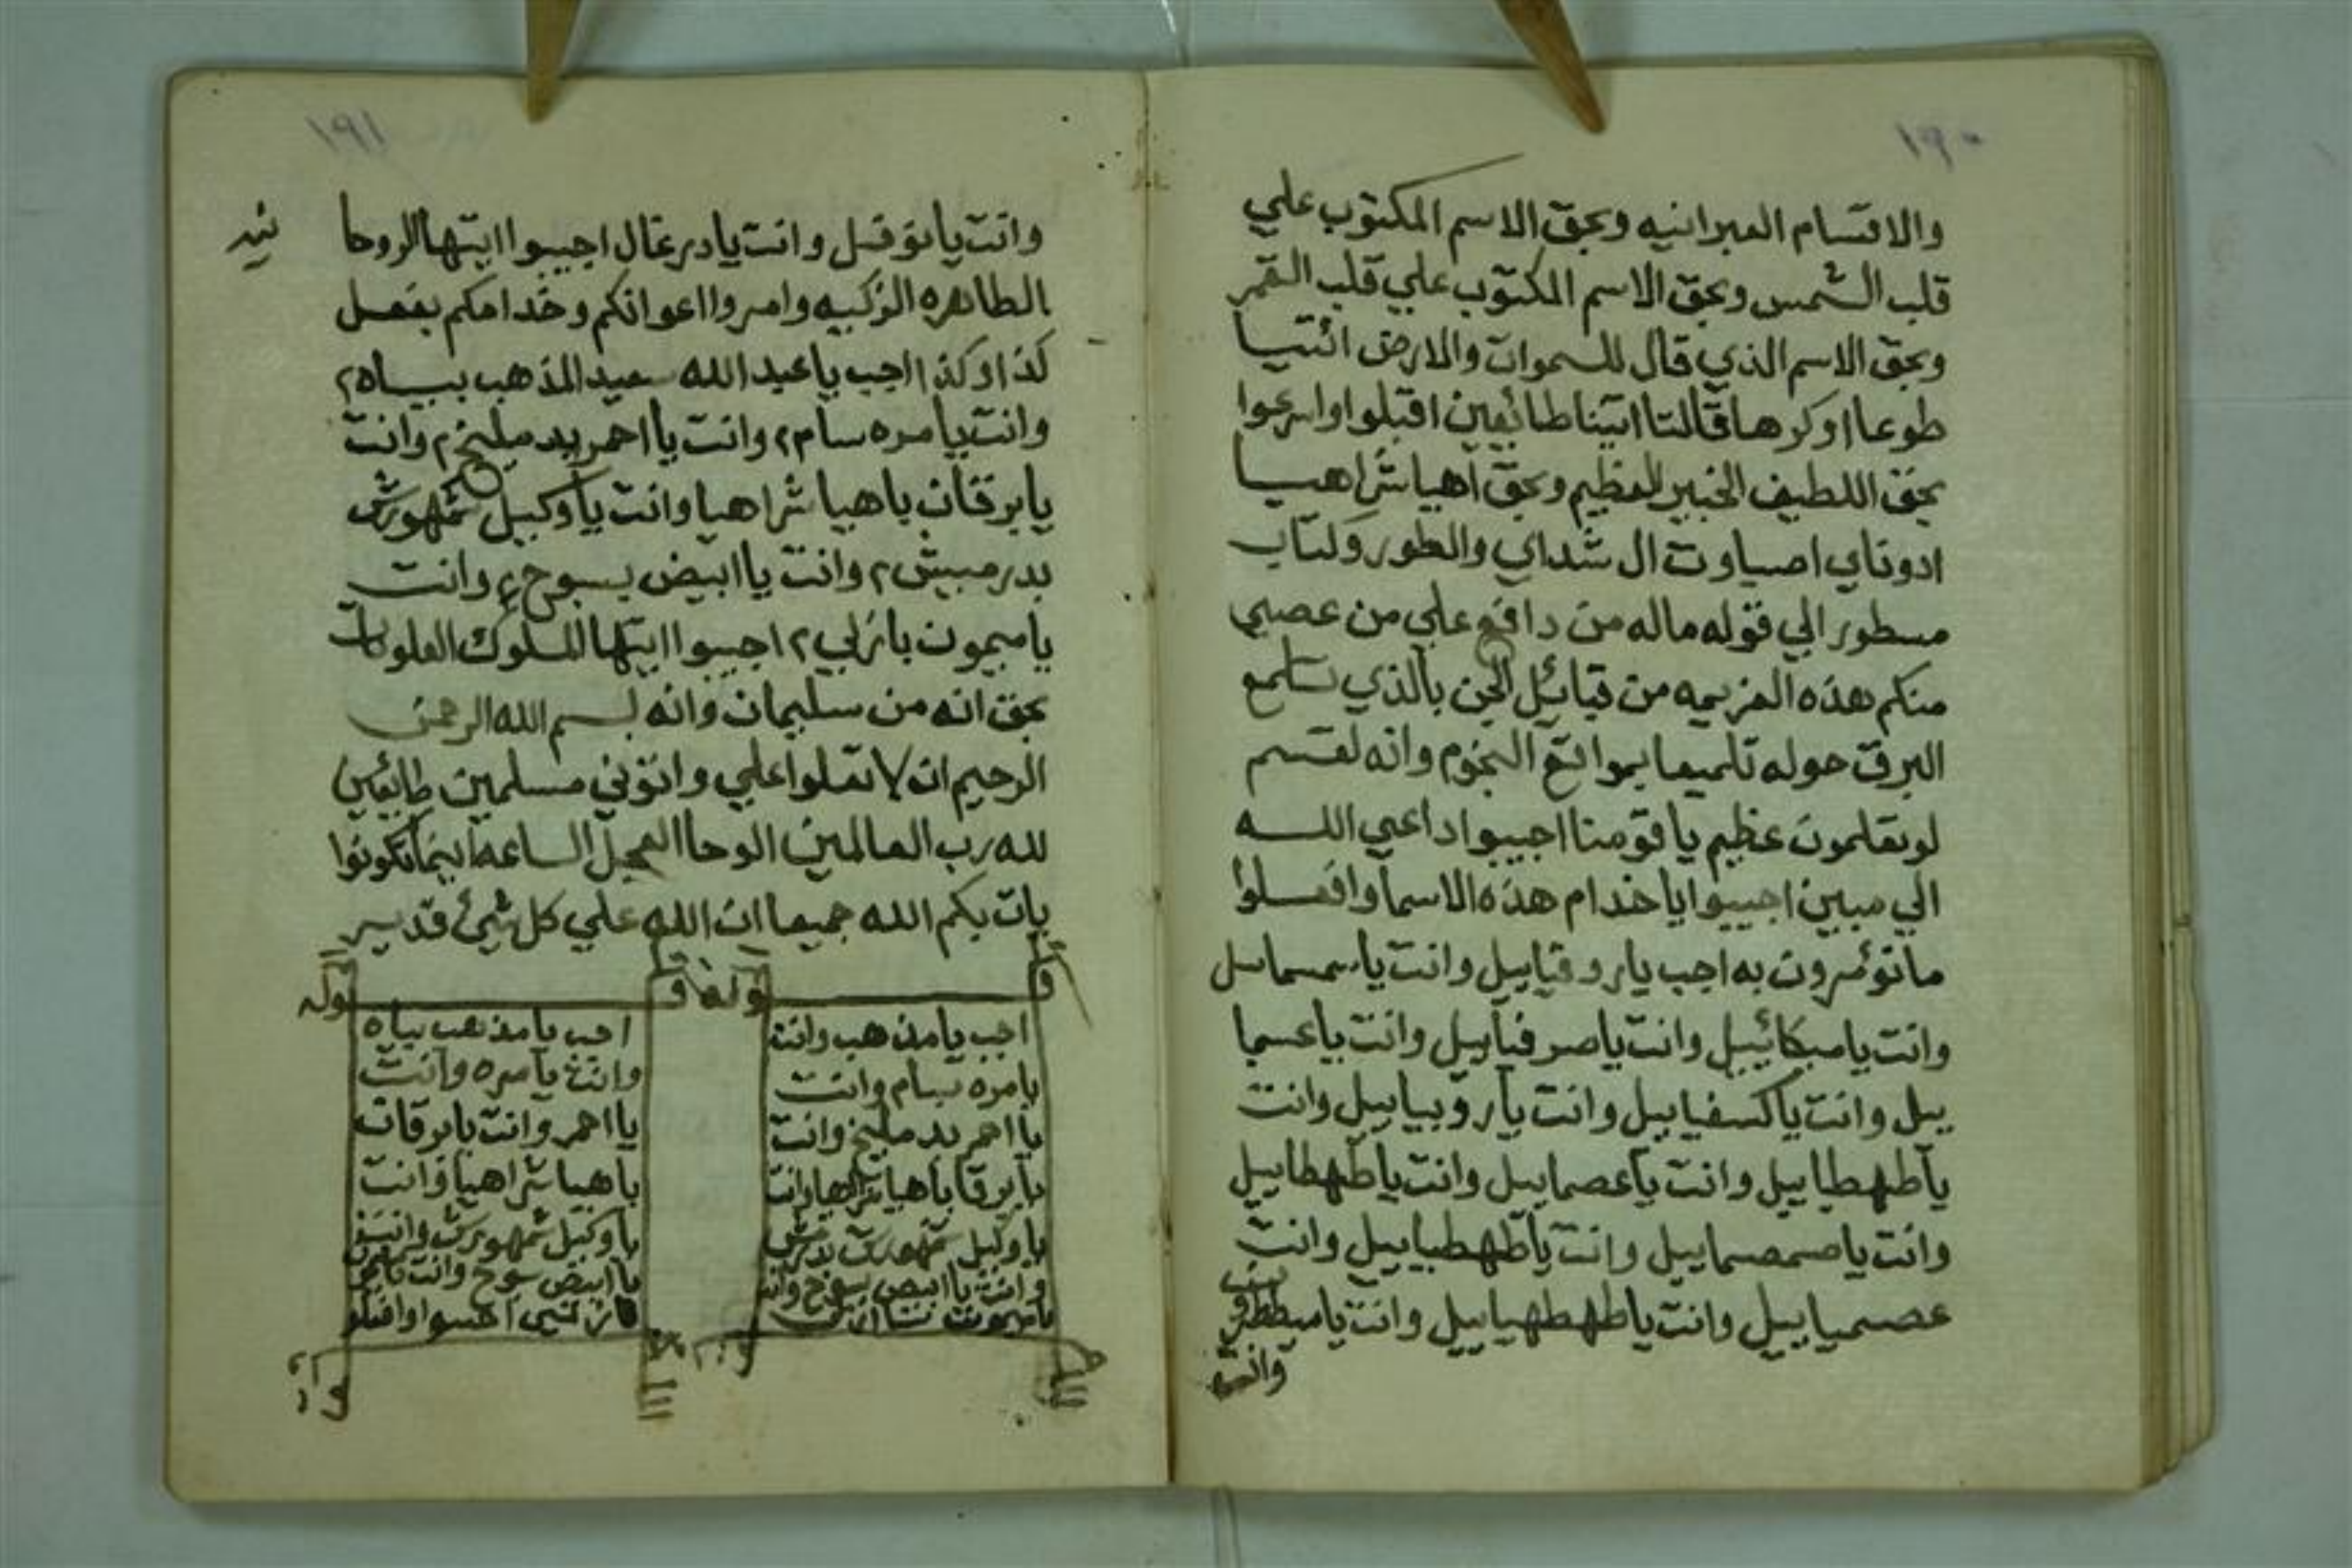 ١٩٠
والاقسام العبرانيه وبحق الاسم المكتوب علي
قلب الشمس وبحق الاسم المكتوب علي قلب القمر
وبحق الاسم الذي قال للسموات والارض ائتيا
طوعا اوكرها قالتا اتينا طائعين اقبلوا واسرعوا
بحق اللطيف الخبير العظيم وبحق اهيا شراهيا
ادوناي اصباوت ال شداي والطور وكتاب
مسطور الي قوله ماله من دافع علي من عصي
منكم هذه العزيمه من قبائل الجن بالذي
البرق حوله تلميعا بمواقع النجوم وانه لقسم
لوتعلمون عظيم يا قومنا اجيبوا داعي الله
الي مبين اجيبوا ياخدام هذه الاسما وافعلوا
ماتؤمرون به اجب ياروقياييل وانت ياسمسماييل
وانت ياميكائييل وانت ياصرفياييل وانت ياعسما
ييل وانت ياكسفياييل وانت ياروبياييل وانت
ياطهطاييل وانت ياعصماييل وانت ياطهطاييل
وانت ياصمصماييل وانت ياطهطياييل وانت
عصمياييل وانت ياطهطهياييل وانت ياميططرون
وانت
١٩١
وانت يا وانت يادرغال اجيبوا ايتها الروحا نيه
الطاهره الزكيه وامروا اعوانكم وخدامكم بفعل
كذا وكذا اجب ياعبد الله سعيد المذهب بياه٢
وانت يامره سام٢ وانت يااحمر بد مليخ٢ وانت
يابرقان باهيا شراهيا وانت ياوكيل شمهورش
بدرميش٢ وانت ياابيض بسوح٤ وانت
ياميمون بازلي٢ اجيبوا ايتها الملوك العلويات
بحق انه من سليمان وانه بسم الله الرحمن
الرحيم ان لا تعلوا علي واتوني مسلمين طائعين
لله رب العالمين الوحا العجل الساعه اينما تكونوا
يات بكم الله جميعا ان الله علي كل شيئ قدير
اجب يا مذهب وانت
يامره بسام وانت
يااحمر بد مليخ وانت
يابرقا باهيا شراهيا وانت
ياوكيل شمهورش
وانت ياابيض بسوح وانت
ياميمون
اجب يا مذهب بياه
وانت يامره وانت
يااحمر وانت يابرقان
باهيا شراهيا وانت
ياوكيل شمهورش وانت
ياابيض بسوح وانت